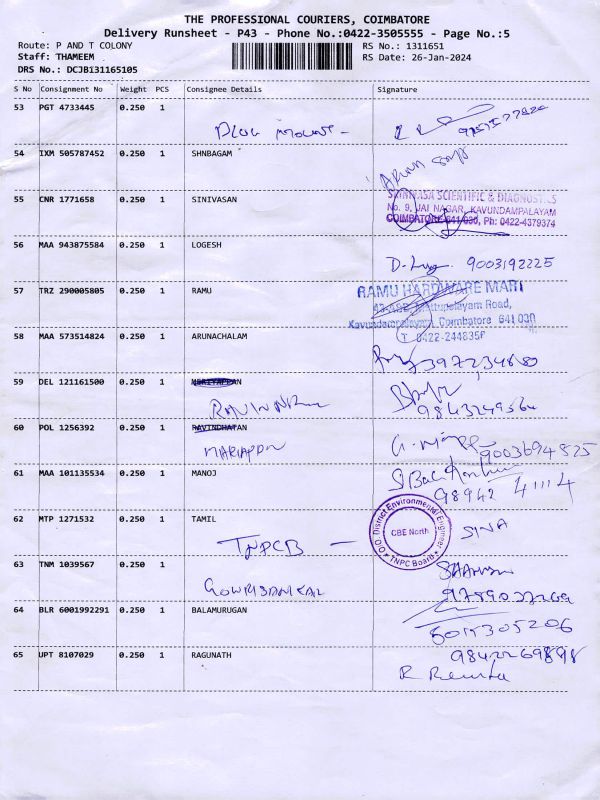 THE PROFESSIONAL COURIERS, COIMBATORE
Delivery Runsheet - P43 - Phone No.:0422-3505555 - Page No.:5
Route: P AND T COLONY RS No.: 1311651
Staff: THAMEEM RS Date: 26-Jan-2024
DRS No.: DCJB131165105
S No Consignment No Weight PCS Consignee Details Signature
53 PGT 4733445 0.250 1
54 IXM 505787452 0.250 1 SHNBAGAM
Arun
55 CNR 1771658 0.250 1 SINIVASAN
SRINIVASA SCIENTIFIC & DIAGNOSTICS
No. 9, JAI NAGAR, KAVUNDAMPALAYAM
COIMBATORE-641 030, Ph: 0422-4379374
56 MAA 943875584 0.250 1 LOGESH
9003192225
57 TRZ 290005805 0.250 1 RAMU
RAMU HARDWARE MART
Mettupalayam Road,
Kavundampalayam, Coimbatore 641 030
58 MAA 573514824 0.250 1 ARUNACHALAM
59 DEL 121161500 0.250 1
9843249564
60 POL 1256392 0.250 1 RAVINDHATAN
MARIAPPN
9003694825
61 MAA 101135534 0.250 1 MANOJ
98942 41114
62 MTP 1271532 0.250 1 TAMIL
TNPCB -
O/O. District Environmental Engineer
CBE North
TNPC Board
SINA
63 TNM 1039567 0.250 1
GOWRISANKAR
64 BLR 6001992291 0.250 1 BALAMURUGAN
65 UPT 8107029 0.250 1 RAGUNATH